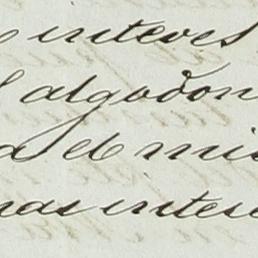 interes
algodon
el mis
mas interes